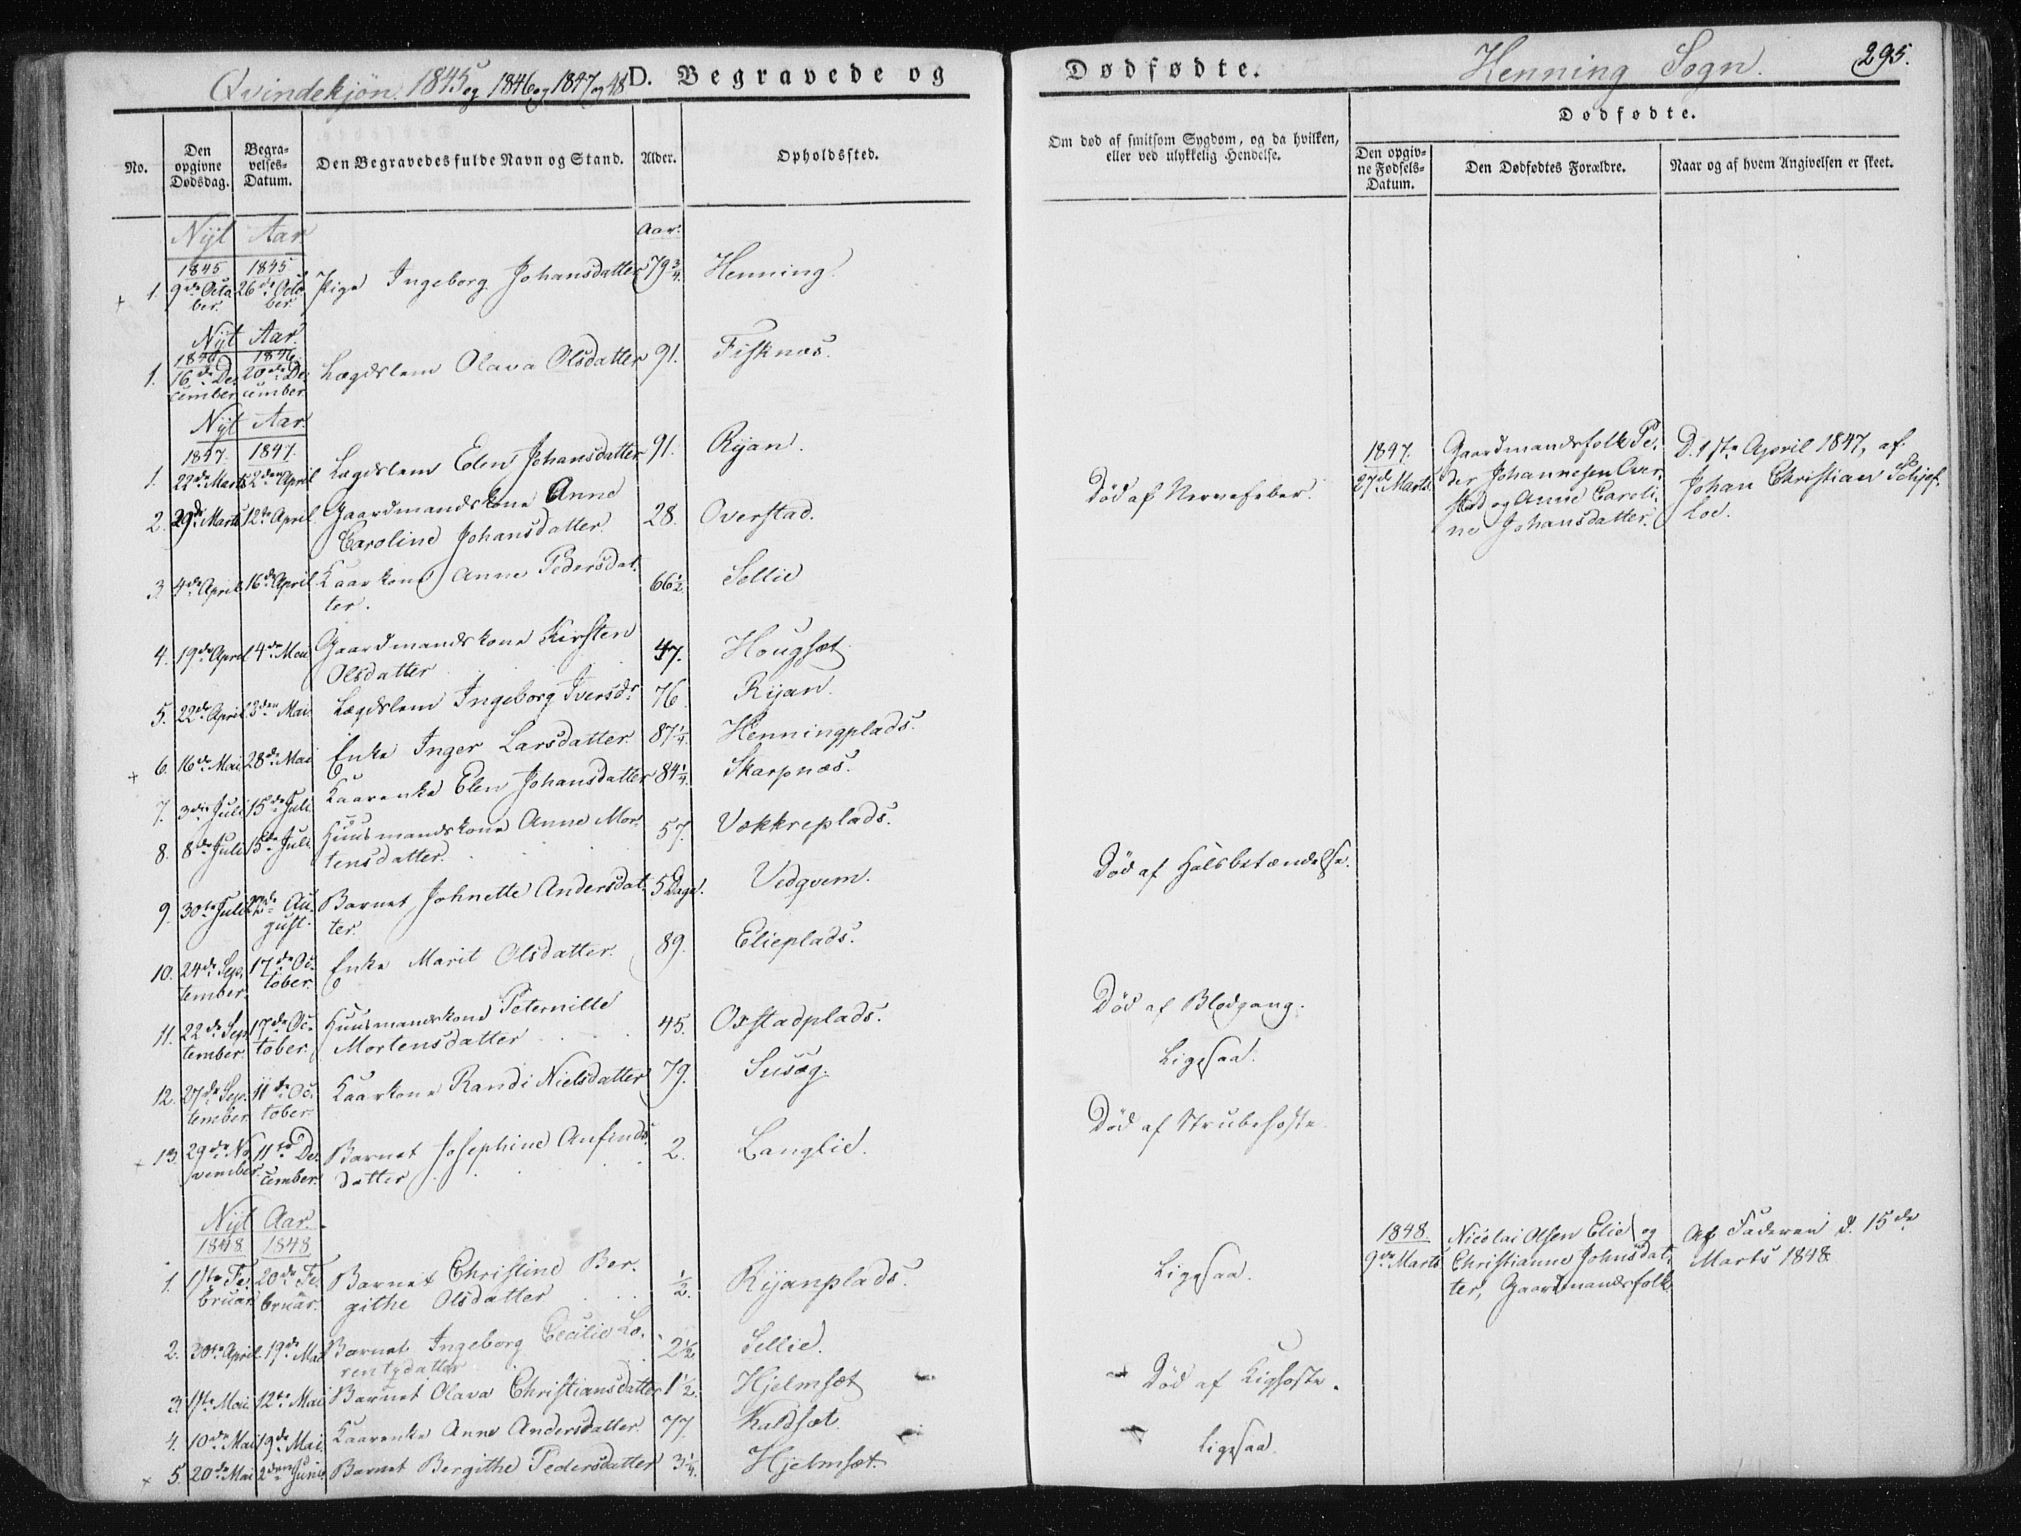 Qvindekjøn. 1845 og 1846 og 1847 og 48
D. Begravede og
Dødfødte.
Henning Sogn.
295.
No.
Den opgivne Dødsdag.
Begravelses-Datum.
Den Begravedes fulde Navn og Stand.
Alder.
Opholdssted.
Om død af smitsom Sygdom, og da hvilken,
eller ved ulykkelig Hendelse.
Dødfødte.
Den opgivne Fødsels-Datum.
Den Dødfødtes Forældre.
Naar og af hvem Angivelsen er skeet.
Nyt Aar
Aar.
1845 1845
1. 9de October. 26de October Pige Ingeborg Johansdatter 79 3/4. Henning.
Nyt Aar.
1846 1846.
1. 16de December 20de December Lægdslem Olava Olsdatter 91. Fisknæs.
Nyt Aar.
1847. 1847.
1. 22de Marts 2den April Lægdslem Elen Johansdatter 91. Ryan.
2. 29de Marts 12te April Gaardmandskone Anne
Caroline Johansdatter. 28. Overstad. Død af Nervefeber.
1847.
27de Marts.
Gaardmandsfolk Pe-
der Johannesen Over-
stad og Anne Caroli-
ne Johansdatter.
D. 1ste April 1847, af
Johan Christian Schjef-
loe.
3. 4de April 16de April Kaarkone Anne Pedersdat-
ter. 66 1/2. Sellie
4. 19de April 4de Mai Gaardmandskone Kirsten
Olsdatter 47. Hougsæt
5. 22de April 3den Mai Lægdslem Ingeborg Iversdr 76. Ryan.
6. 16de Mai 28de Mai Enke Inger Larsdatter. 87 1/4. Henningplads.
7. 3die Juli 15de Juli Kaarenke Elen Johansdatter 84 1/4. Skarpnæs.
8. 8de Juli 15de Juli. Huusmandskone Anne Mor-
tensdatter. 57. Vækkreplads. Død af Halsbetændelse.
9. 30te Juli August. Barnet Johnette Andersdat-
ter. 5 Dage. Vedgvem.
10. 24de September 17de October. Enke Marit Olsdatter. 89. Elieplads.
11. 22de September 17de October. Huusmandskone Peternille
Mortensdatter 45. Oxstadplads. Død af Blodgang.
12. 27de September 11te October. Kaarkone Randi Nielsdatter 79. Susæg. Ligesaa.
13. 29de November. 11te December. Barnet Josephine Anfinds-
datter 2. Langlie. Død af Strubehoste
Nyt Aar.
1848. 1848
1. 1ste Februar. 20de Februar. Barnet Christine Ber-
githe Olsdatter 1/2. Ryanplads. Ligesaa.
1848.
9de Marts
Nicolai Olsen Elie og
Christianne Johnsdat-
ter, Gaardmandsfolk
Af Faderen d. 15de
Marts 1848.
2. 30te April. 19de Mai Barnet Ingeborg Cecilie Lo-
rentzdatter 2 1/2 Sellie.
3. 1ste Mai 12te Mai Barnet Olava Christiansdatter 1 1/2. Hjelmsæt Død af Kighoste.
4. 10de Mai 19de Mai. Kaarenke Anne Andersdatter. 77. Kaldsæt.
5. 20de Mai 2den Juni Barnet Bergithe Pedersdatter 3 1/4. Hjelmsæt. Ligesaa.